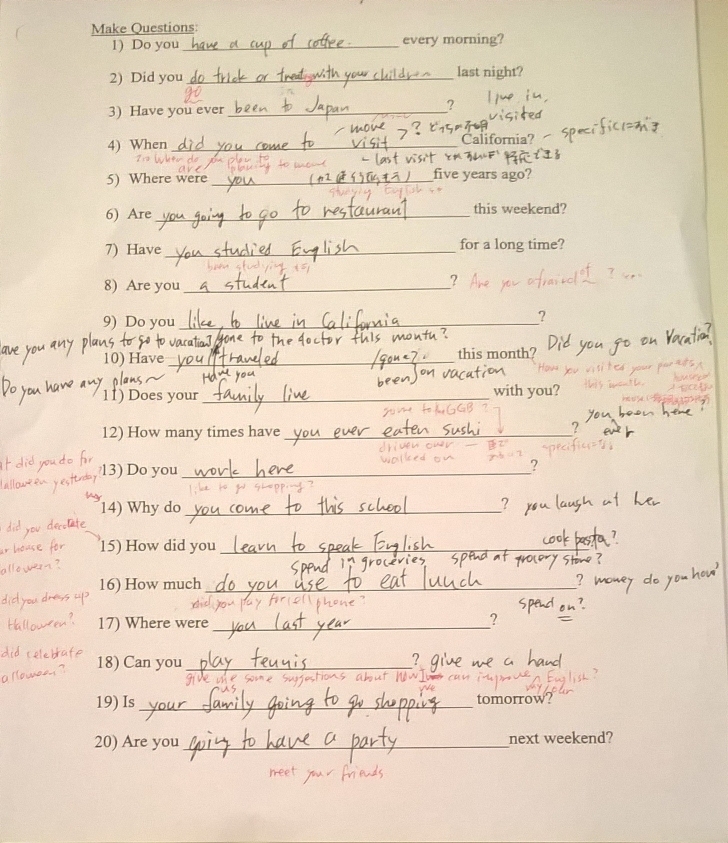 Make Questions:
1) Do you have a cup of coffee. every morning?
2) Did you do trick or treating with your children last night?
go
3) Have you ever been to Japan ?
live in,
visited
move
4) When did you come to visit California? - specificに
- last visit
are planning to move
5) Where were you five years ago?
studying English
6) Are you going to go to restaurant this weekend?
7) Have you studied English for a long time?
been studying
8) Are you a student ? Are you afraid of ?
9) Do you like to live in California ?
have you any plans to go to vacation? /gone to the doctor this month? Did you go on vacation?
10) Have you traveled /gone? this month?
Do you have any plans~ Have you been on vacation Have you visited your parents
this month
11) Does your family live with you?
gone to GGB? you been here?
12) How many times have you ever eaten sushi ? ever
driven over
walked on specific
did you do for
Halloween yesterday?
13) Do you work here ?
like to go shopping?
14) Why do you come to this school ? you laugh at her
did you decorate
house for
alloween?
15) How did you learn to speak English cook pasta?
spend in groceries spend at grocery store?
16) How much do you use to eat lunch ? money do you have
did you pay for cell phone? spend on?
did you dress up
Halloween?
17) Where were you last year ?
did celebrate
alloween?
18) Can you play tennis ? give me a hand
give me some suggestions about how I can improve my English?
us
19) Is your family going to go shopping tomorrow?
20) Are you going to have a party next weekend?
meet your friends